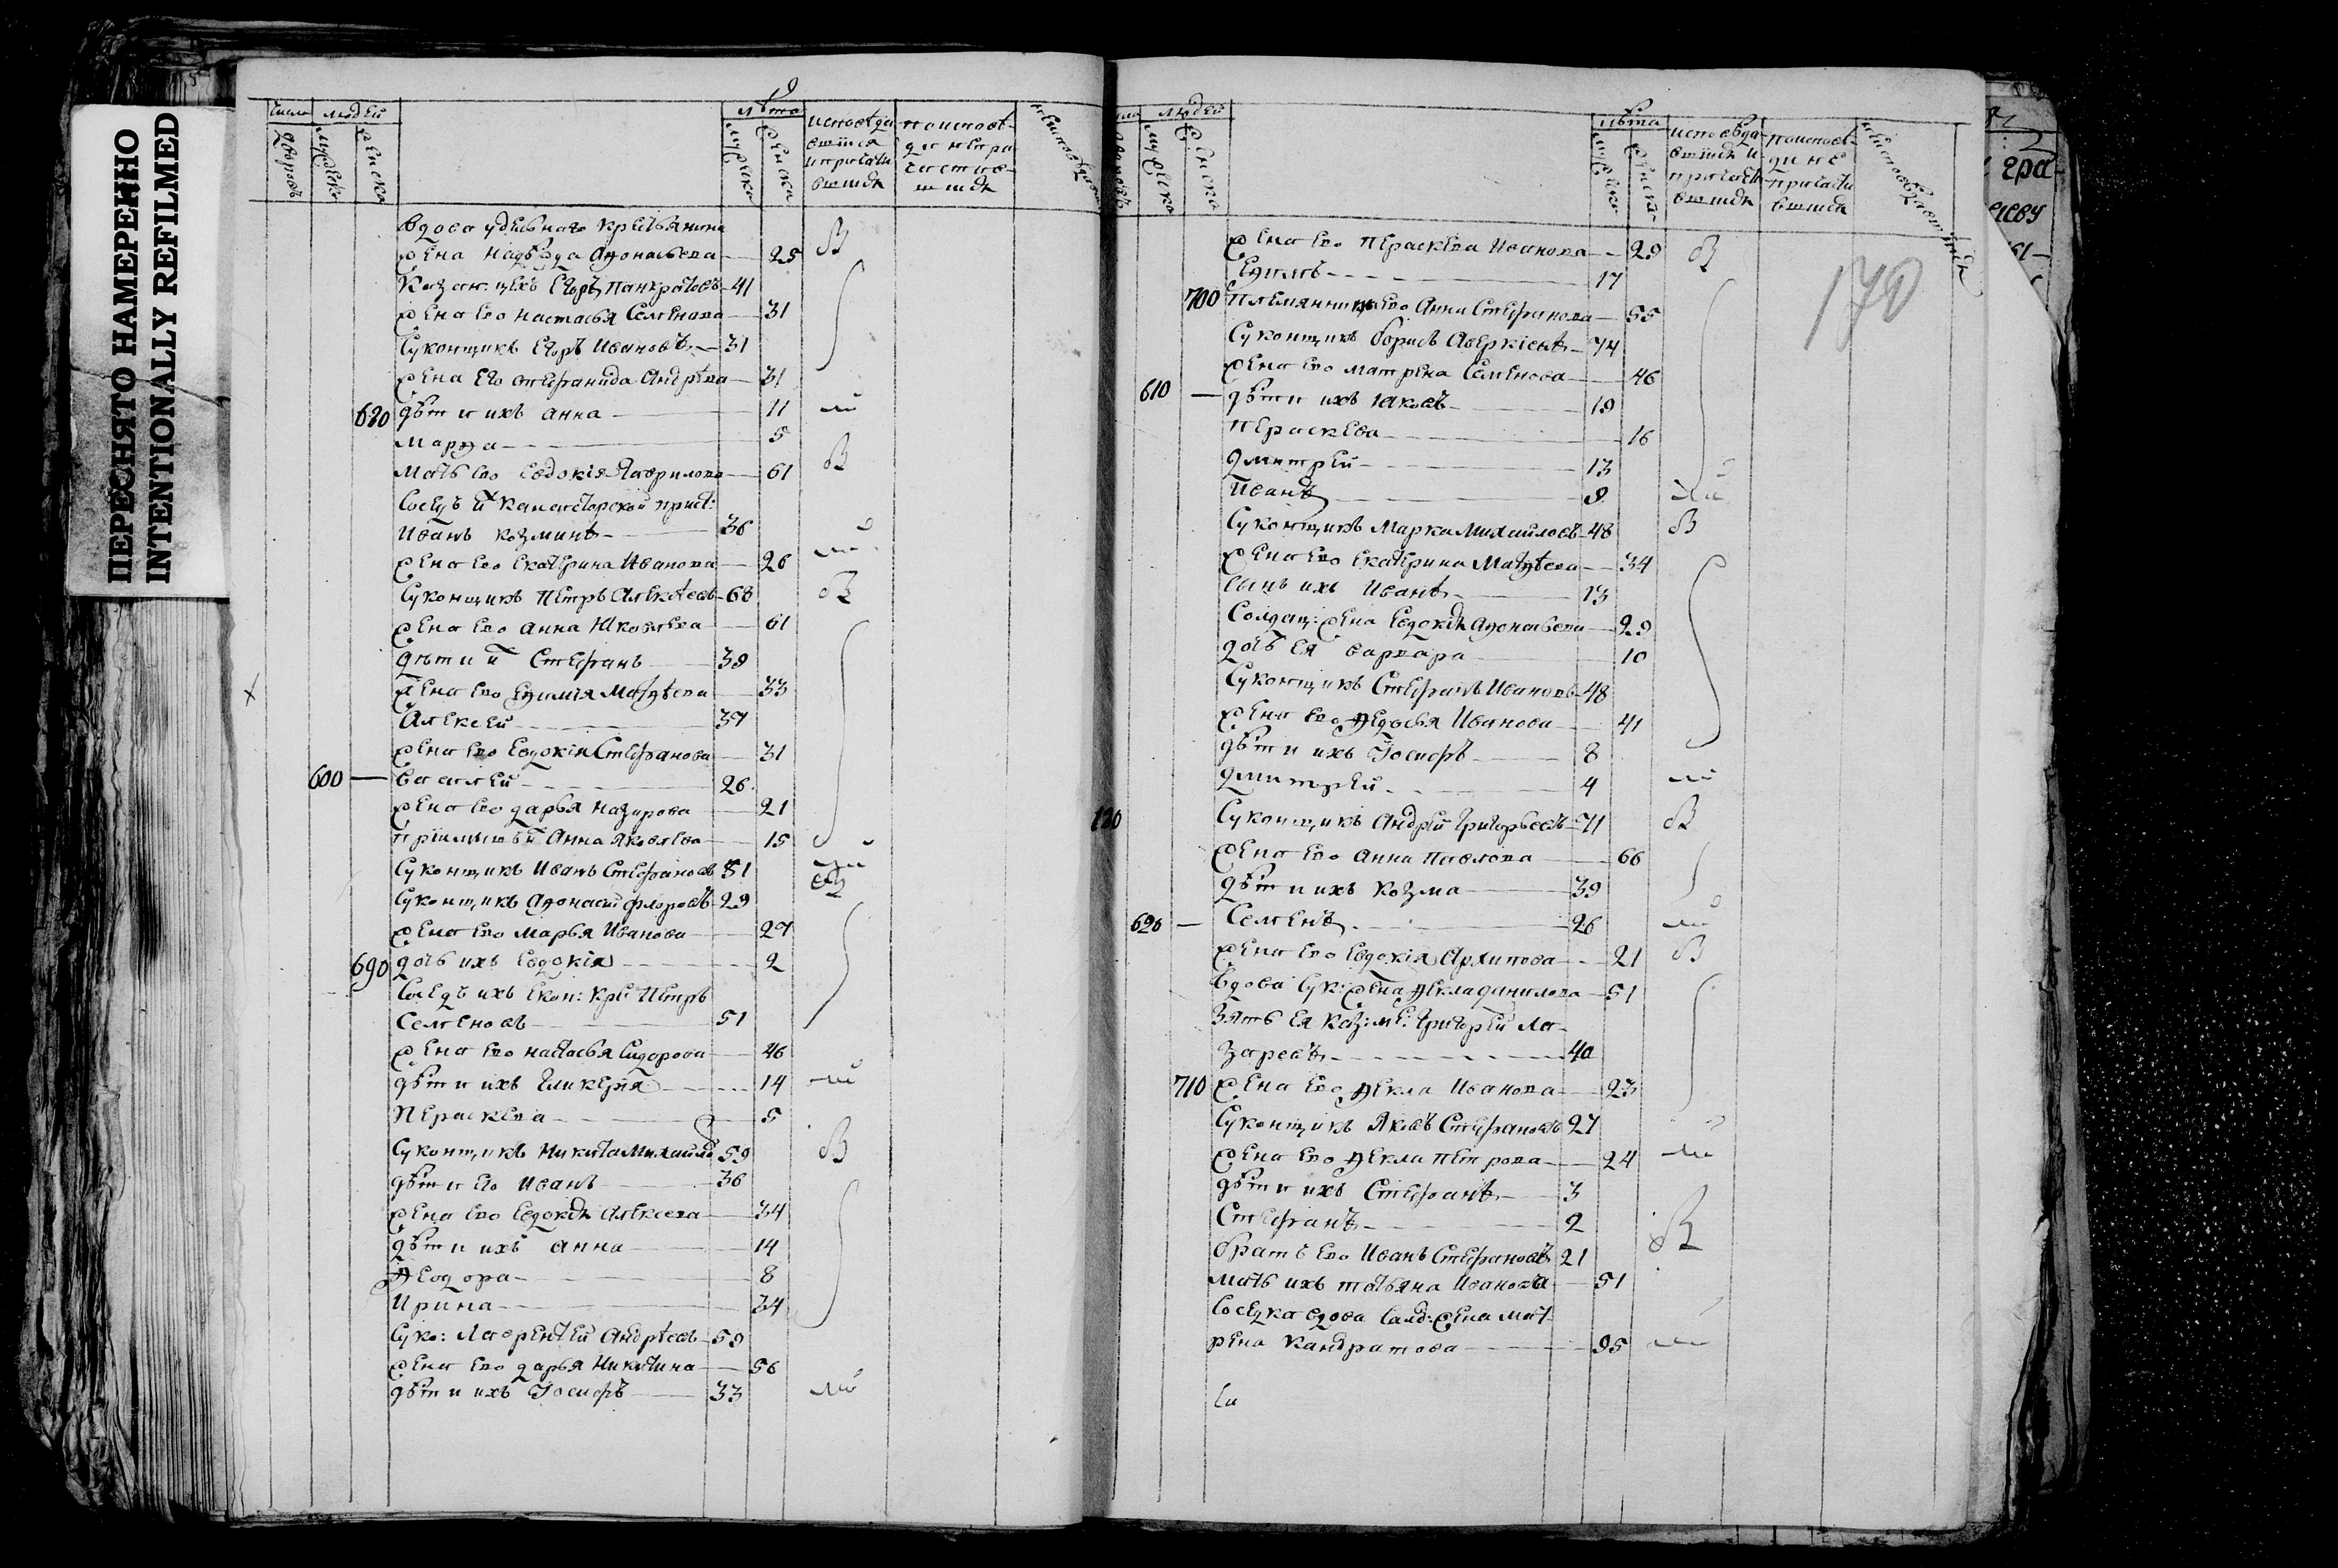 ПЕРЕСНЯТО НАМЕРЕННО
INTENTIONALLY REFILMED
число людей
лѣта
дворовъ
мужеска
женска
мужеска
женска
вдова удѣльнаго крестьянина
жена Надѣжда Афонасьева 25
Казан: цехъ Егоръ Панкратовъ 41
жена ево Настасья Семенова 31
Суконщикъ Егоръ Ивановъ 31
жена его Стефанида Андрѣева 31
680 дѣти ихъ Анна 11
Марфа 5
мать ево Евдокія Гаврилова 61
Иванъ Козминъ 36
жена ево Екатерина Иванова 26
Суконщикъ Петръ Алексѣевъ 68
жена ево Анна Яковлева 61
дѣти Стефанъ 38
жена ево Ефимія Матфѣева 33
Алексей 37
жена ево Евдокія Стефанова 31
600 Василей 26
жена ево Дарья Назарова 21
Анна Яковлева 15
Суконщикъ Иванъ Стефановъ 51
Суконщикъ Афонасий Флоровъ 29
жена ево Марья Иванова 27
690 дочь ихъ Евдокія 2
Соседъ ихъ Екон: кре: Петръ
Семеновъ 51
жена ево Настасья Сидорова 46
дѣти ихъ Гликерия 14
Параскева 5
Суконщикъ Никита Михайло 59
дѣти его Иванъ 36
жена ево Евдокія Алексеева 34
дѣти ихъ Анна 14
Феодора 8
Ирина 34
Суко: Лаврентей Андрѣевъ 59
жена ево Дарья Никитина 56
дѣти ихъ Іосифъ 33
людей
лѣта
мужеска
женска
170
жена ево Параскева Иванова 29
Ефимъ 17
700 племянница ево Анна Стефанова 55
Суконщикъ Борисъ Аверкіевъ 74
жена ево Матрена Семенова 46
610 дѣти ихъ Іаковъ 19
Параскева 16
Дмитрей 13
Иванъ 9
Суконщикъ Марка Михайловъ 48
жена ево Екатерина Матфѣева 34
сынъ ихъ Иванъ 13
Солдац: жена Евдокія Афонасьева 29
дочь ея Варвара 10
Суконщикъ Стефанъ Ивановъ 48
жена ево Федосья Иванова 41
дѣти ихъ Іосифъ 8
Дмитрей 4
120 Суконщикъ Андрей Григорьевъ 71
жена ево Анна Павлова 66
дѣти ихъ Козма 39
620 Семенъ 26
жена ево Евдокія Архипова 21
Вдова Сук: жена Фекла Данилова 51
Зять ея Каз: ме: Григорей Ла-
заревъ 40
710 жена ево Фекла Иванова 23
Суконщикъ Яковъ Стефановъ 27
жена ево Фекла Петрова 24
дѣти ихъ Стефанъ 3
Стефанъ 2
братъ ево Иванъ Стефановъ 21
мать ихъ Татьяна Иванова 51
Соседка вдова Салд: жена Мат-
рена Кандратова 95